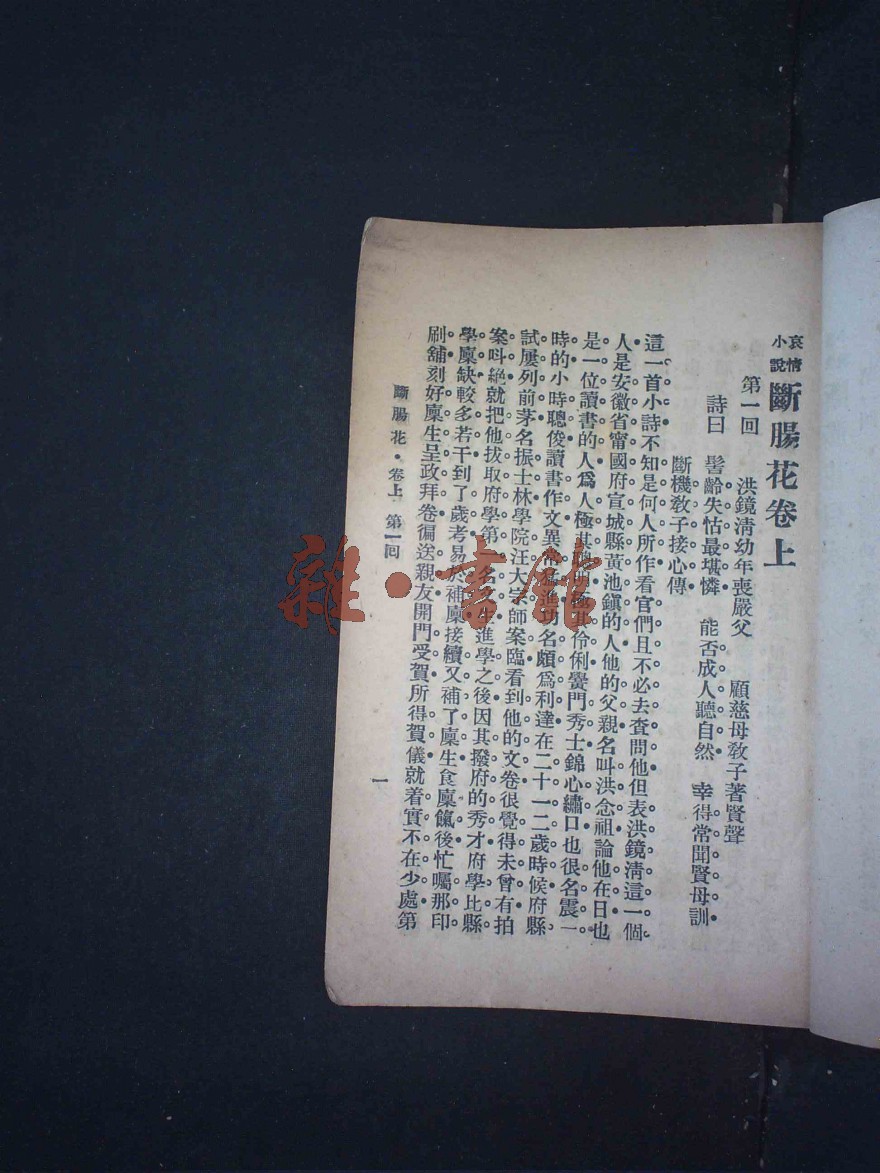 哀情小說 斷腸花卷上
第一回 洪鏡淸幼年喪嚴父 顧慈母敎子著賢聲
詩曰 髫齡失怙最堪憐 能否成人聽自然 幸得常聞賢母訓
斷機敎子接心傳
這一首小詩不知是何人所作看官們且不必去査問他但表洪鏡淸這一個
人是安徽省甯國府宣城縣黃池鎭的人他的父親名叫洪念祖論他在日也
是一位讀書的人爲人極其聰明極其伶俐黌門秀士錦心繡口也很名震一
時的小時聰俊讀書作文異常猛進功名頗爲利達在二十一二歲時候府縣
試屢列前茅名振士林學院汪大宗師案臨看到他的文卷很覺得未曾有拍
案呌絕就把他拔取府學第一名文生進學之後因其撥府的秀才府學比縣
學廩缺較多若干到了歲考易於補廩接續又補了廩生食廩餼後忙囑那印
刷舖刻好廩生呈政拜卷徧送親友開門受賀所得賀儀就着實不在少處第
斷腸花・卷上 第一回
一
雜・書館